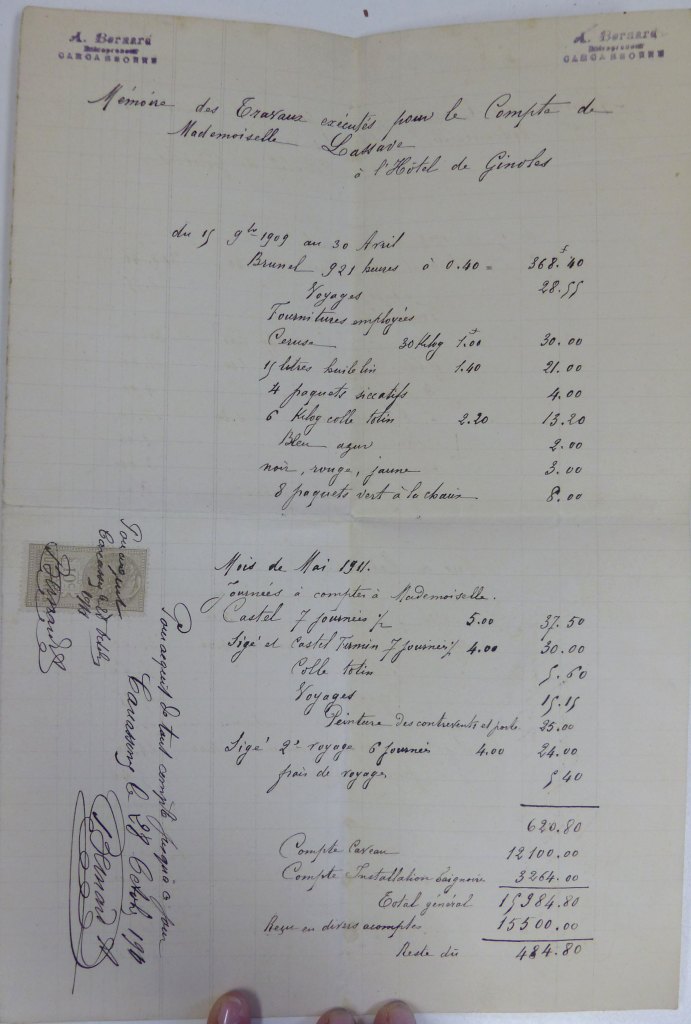 A. Bernard
Entrepreneur
CARCASSONNE
A. Bernard
Entrepreneur
CARCASSONNE
Mémoire des Travaux exécutés pour le Compte de
Mademoiselle Lassave
à l'Hôtel de Ginoles
du 15 9bre 1909 au 30 Avril
Brunel 921 heures à 0.40 = 368.40
Voyages 28.55
Fournitures employées
Ceruse 30 Kilog 1.00 30.00
15 litres huile lin 1.40 21.00
4 paquets siccatifs 4.00
6 Kilog colle totin 2.20 13.20
Bleu azur 2.00
noir, rouge, jaune 3.00
8 paquets vert à la chaux 8.00
Mois de Mai 1911.
Journées à compter à Mademoiselle.
Castel 7 journées ½ 5.00 37.50
Sigé et Castel Firmin 7 journées ½ 4.00 30.00
Colle totin 5.60
Voyages 15.15
Peinture des contrevents et porte 25.00
Sigé 2e voyage 6 journées 4.00 24.00
frais de voyages 5.40
620.80
Compte Caveau 12100.00
Compte Installation baignoire 3264.00
Total général 15984.80
Reçu en divers acomptes 15500.00
Reste dû 484.80
Pour acquit
Carcassonne 27
1911
Bernard A
Pour acquit de tout compte jusqu'à ce jour
Carcassonne le 27 Octob. 1911
Bernard A